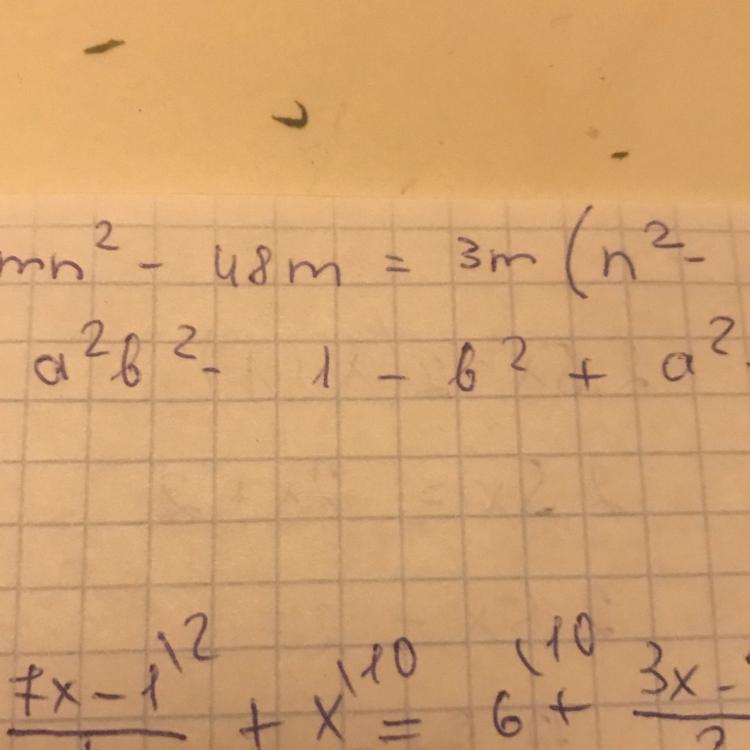 mn² - 48m = 3m (n² -
a²b² - 1 - b² + a²
7x - 1\2 + x\10 = 6\10 + 3x -